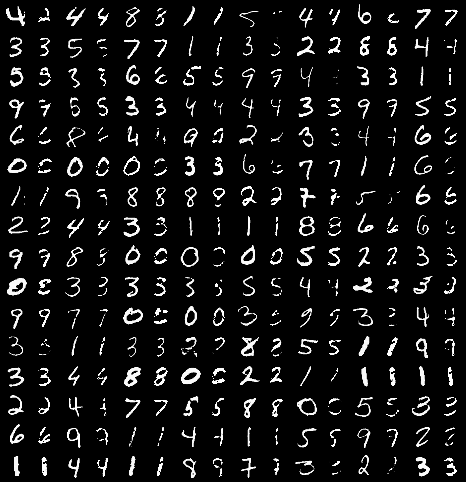 4 2 4 4 8 3 1 1 5 4 4 6 7 7
3 3 5 5 7 7 1 1 3 3 2 2 8 8 4 4
5 5 3 3 6 6 5 5 9 9 4 3 3 1 1
9 9 5 5 3 3 4 4 4 4 3 3 9 9 5 5
6 6 8 4 9 9 2 3 3 4 4 6 6
0 0 0 0 0 0 3 3 6 7 7 1 1 6
1 1 9 9 8 8 8 8 2 2 7 7 5 6 6
2 2 4 4 3 3 1 1 1 1 8 8 6 6 6 6
9 9 8 8 0 0 0 0 0 0 5 5 2 2 3 3
0 0 3 3 3 3 3 3 5 5 4 4 2 2 3 3
9 9 7 7 0 0 0 0 3 9 9 3 3 4 4
3 3 1 1 3 3 2 2 8 8 5 5 1 1 9 9
3 3 4 4 8 8 0 0 2 2 1 1 1 1 1 1
2 2 4 4 7 7 5 5 8 8 0 0 5 5 3 3
6 6 9 9 1 1 4 4 1 1 5 5 9 9 2 2
1 1 4 4 1 1 8 8 7 7 3 3 2 2 3 3